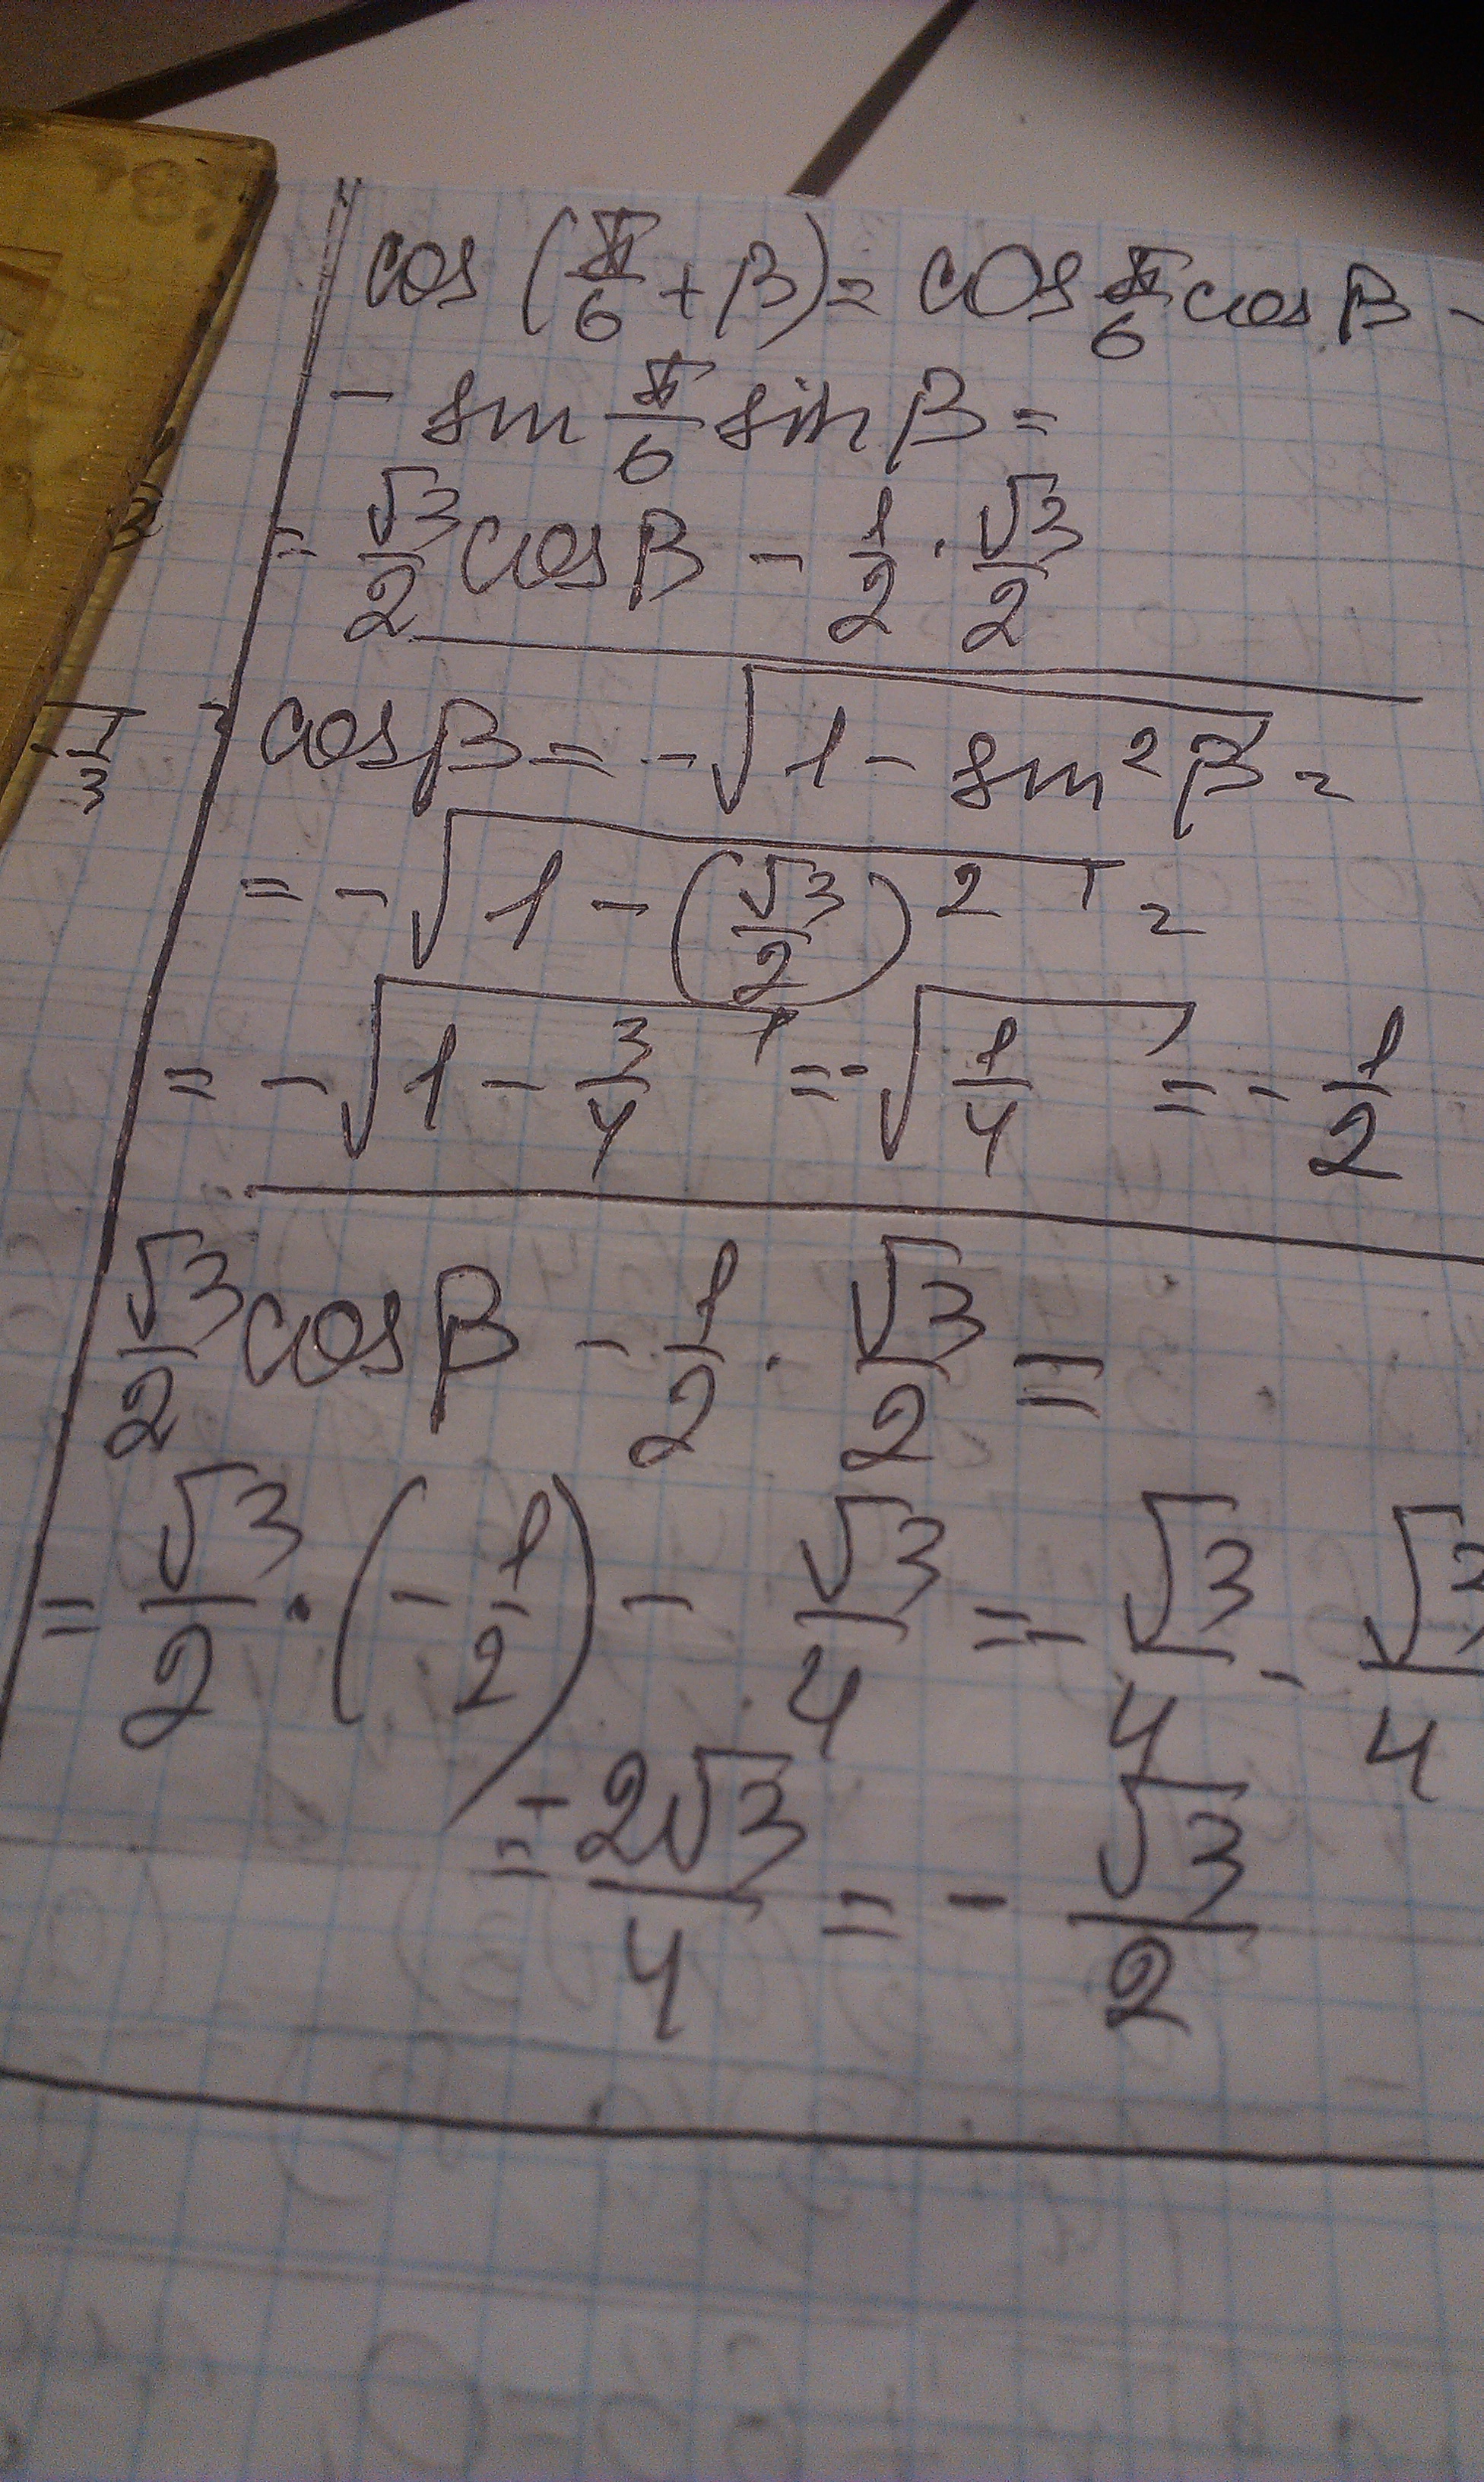 cos (π/6 + β) = cos π/6 cos β -
- sin π/6 sin β =
= √3/2 cos β - 1/2 · √3/2
cos β = - √(1 - sin² β) =
= - √(1 - (√3/2)²) =
= - √(1 - 3/4) = - √(1/4) = - 1/2
√3/2 cos β - 1/2 · √3/2 =
= √3/2 · (- 1/2) - √3/4 = - √3/4 - √3/4
= - 2√3/4 = - √3/2